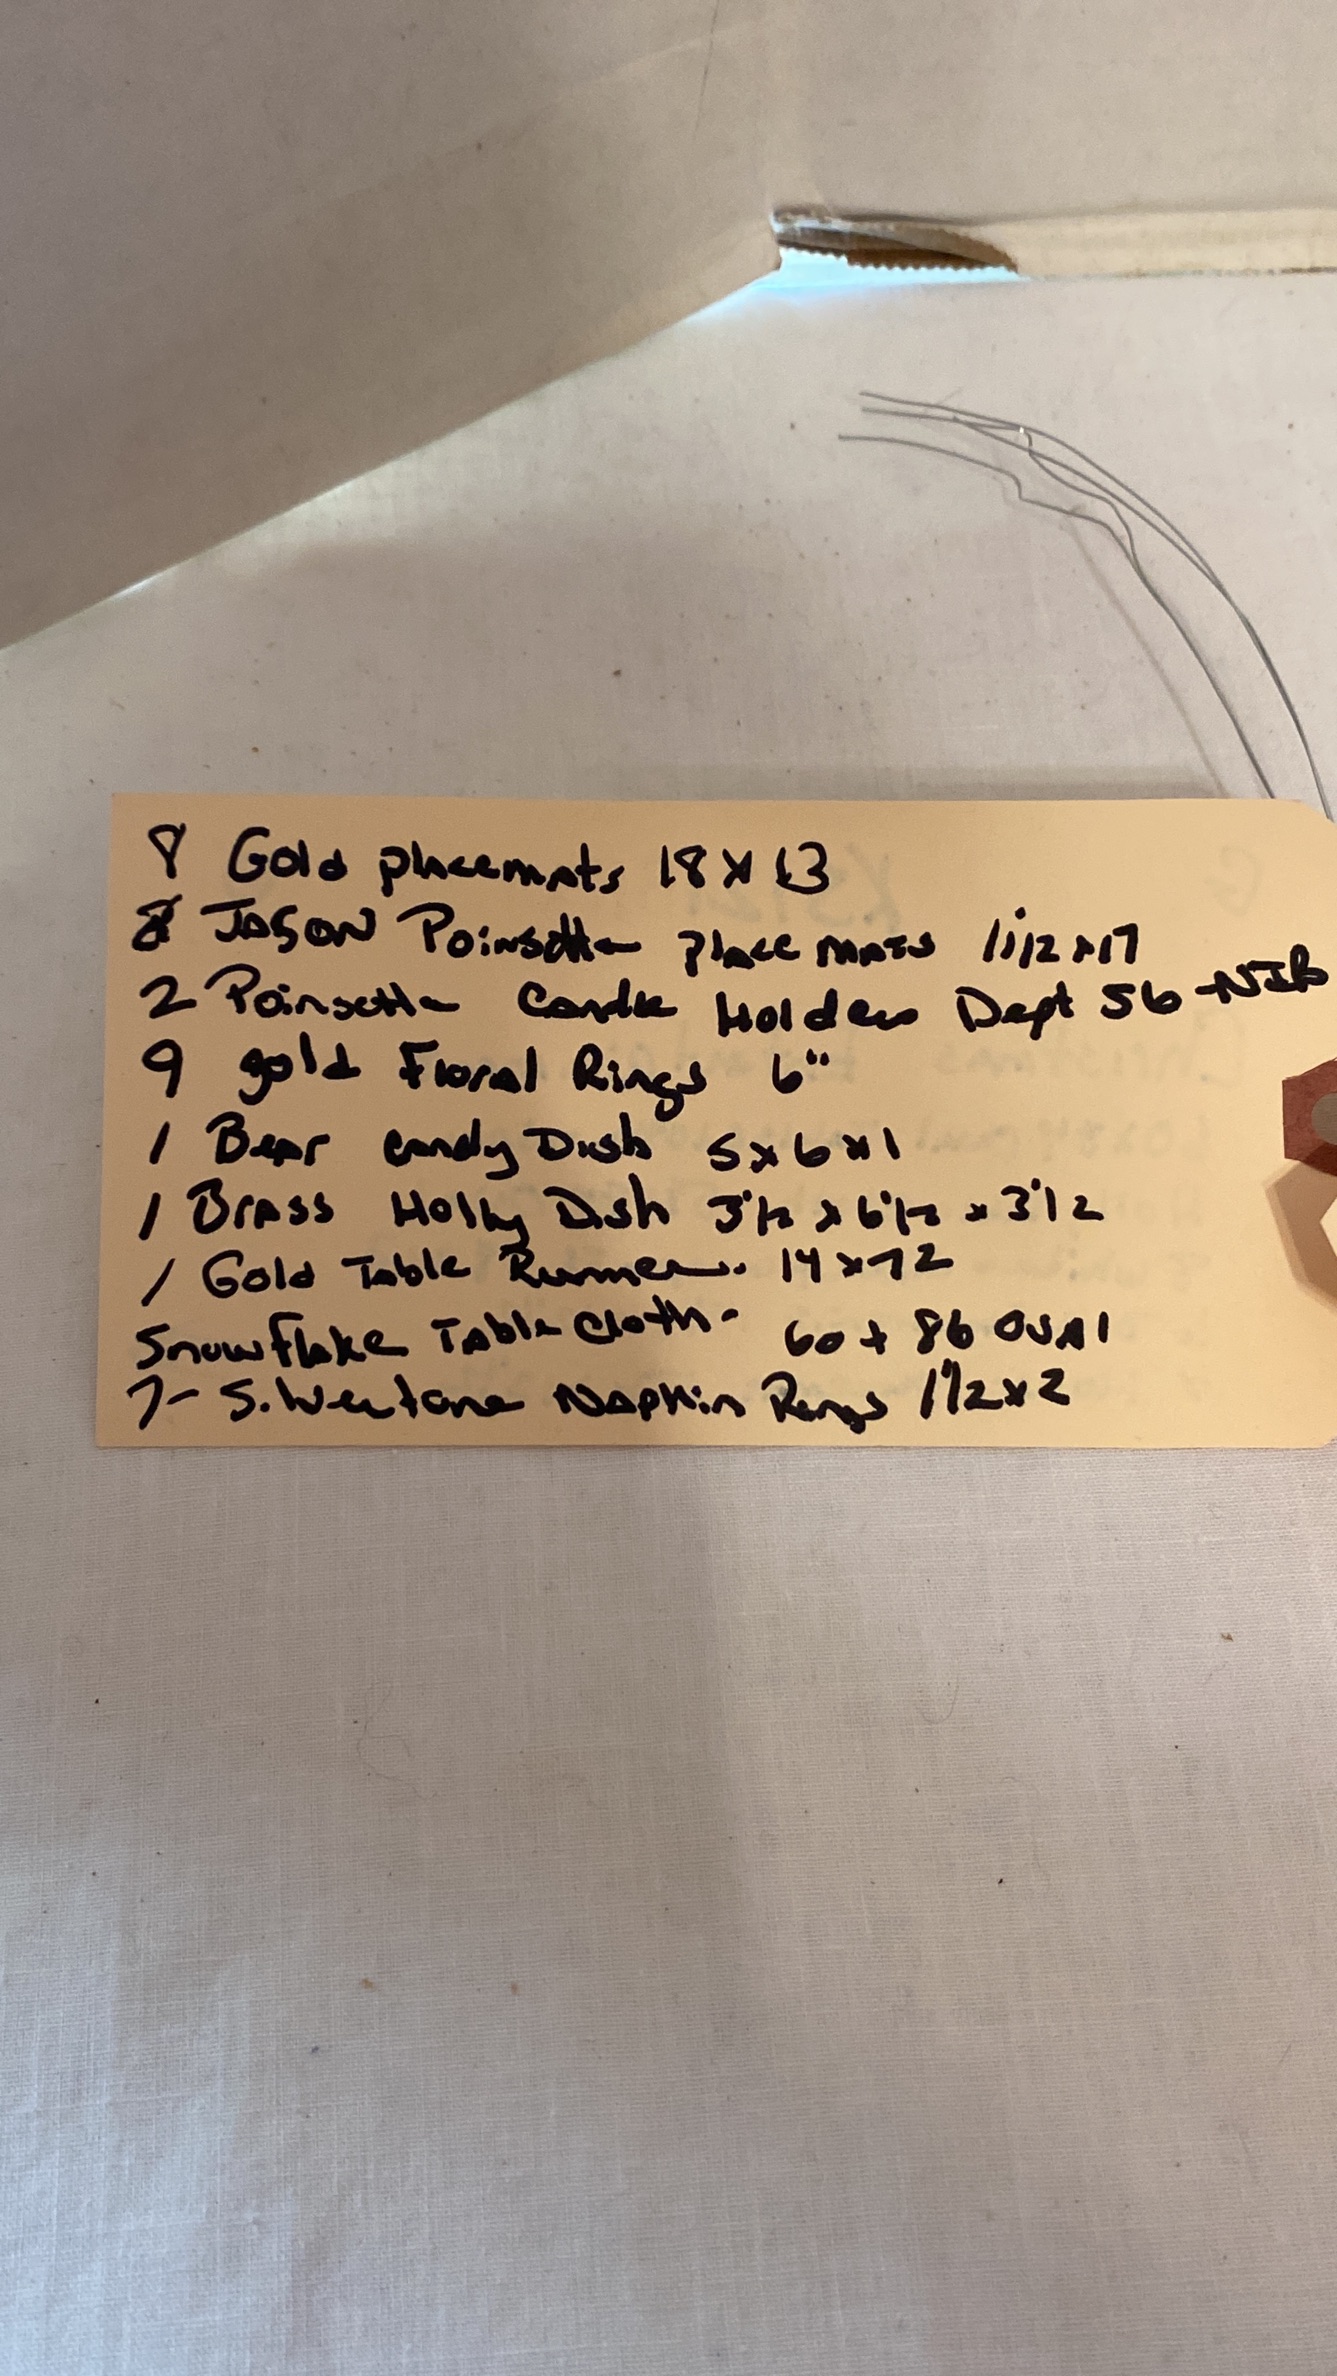 8 Gold placemats 18 x 13
8 JASON Poinsettia placemats 11 1/2 x 17
2 Poinsettia Candle Holders Dept 56 - NIB
9 gold Floral Rings 6"
1 Bear Candy Dish 5 x 6 x 1
1 Brass Holly Dish 3 1/2 x 6 1/2 x 3 1/2
1 Gold Table Runner. 14 x 72
Snowflake Table Cloth - 60 x 86 OVAl
7 - Silvertone Napkin Rings 1 1/2 x 2